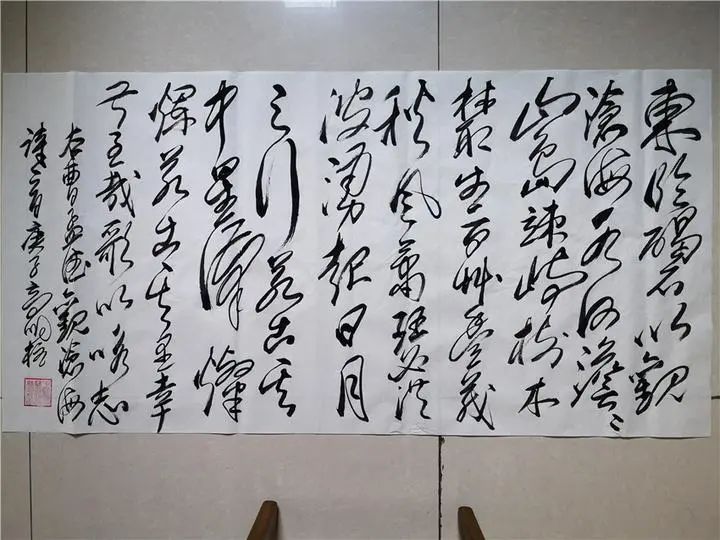 東臨碣石以觀
滄海水何澹々
山島竦峙樹木
叢生百艸豐茂
秋風蕭瑟洪
波湧起日月
之行若出其
中星漢燦
爛若出其里幸
甚至哉歌以詠志
右曹孟德觀滄海
詩一首庚子